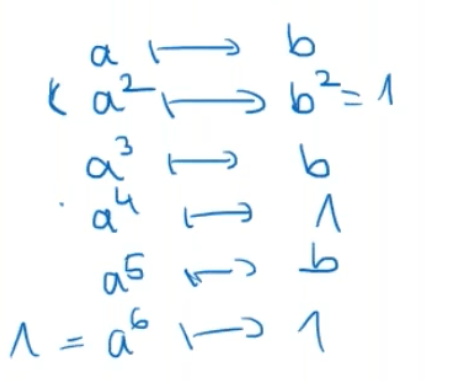 a ↦ b
( a² ↦ b² = 1
a³ ↦ b
a⁴ ↦ 1
a⁵ ↦ b
1 = a⁶ ↦ 1